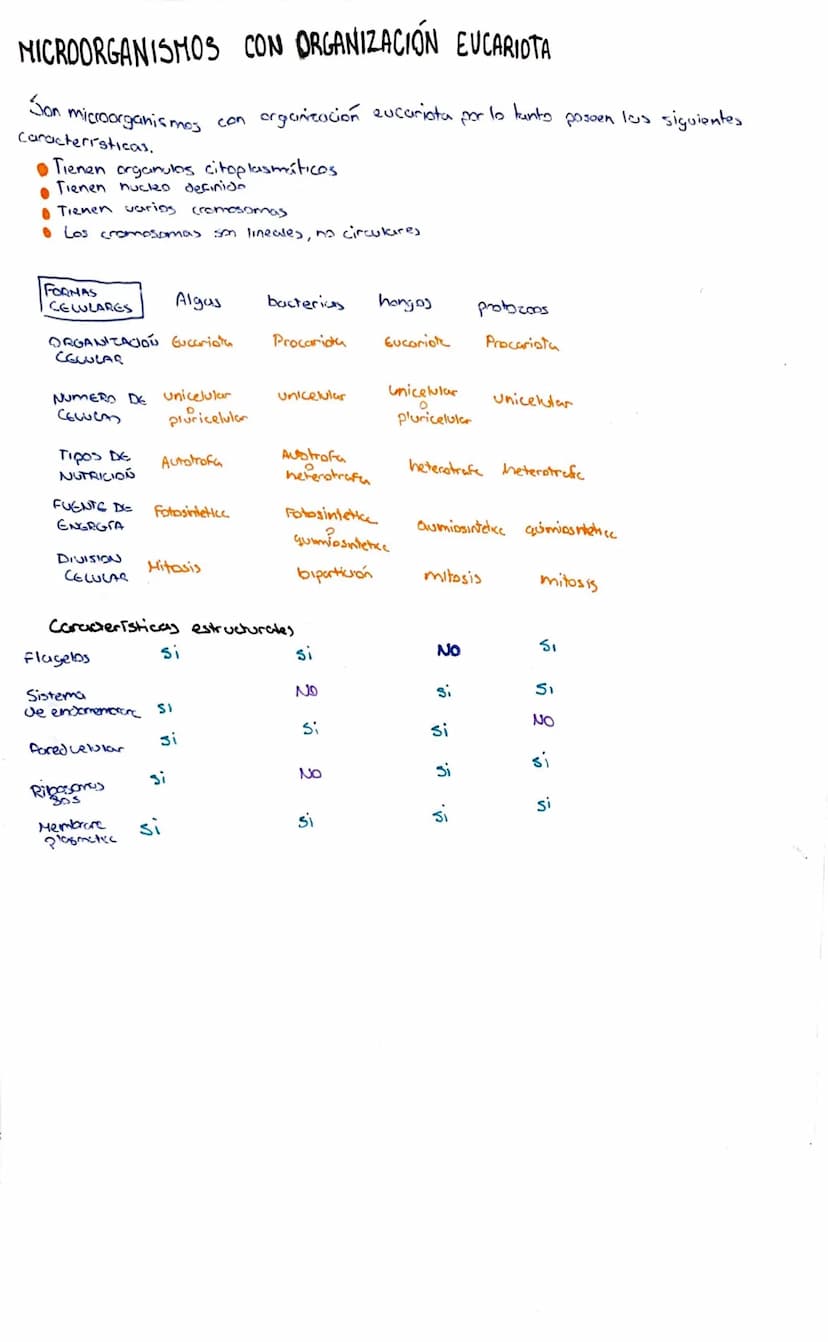 MICROORGANISMOS CON ORGANIZACIÓN EUCARIOTA
Son microorganismos con organización eucariota por lo tanto poseen las siguientes
características.
Tienen organulos citoplasmáticos
Tienen nucleo definido
Tienen varios cromosomas
Los cromosomas son lineales, no circulares
FORMAS CELULARES Algas bacterias hongos protozoos
ORGANIZACIÓN CELULAR Eucariota Procariota Eucariota Procariota
NUMERO DE CELULAS unicelular o pluricelular unicelular unicelular o pluricelular unicelular
TIPOS DE NUTRICIOÑ Autotrofa Autotrofa o heterotrofa heterotrofa heterotrofa
FUENTE DE ENERGÍA Fotosintetica Fotosintetica o quimiosintetica quimiosintetica quimiosintetica
DIVISION CELULAR Mitosis bipartición mitosis mitosis
Características estructurales
Flagelos Si Si NO Si
Sistema de endomembrana Si NO Si Si
Pared celular Si Si Si NO
Ribosomas 80S Si NO Si Si
Membrana plasmatica Si Si Si Si